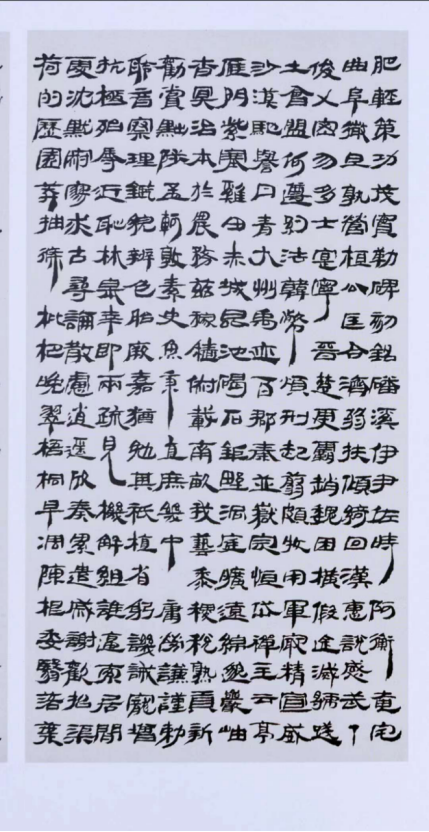 肥輕策功茂實勒碑刻銘磻溪伊尹佐時阿衡奄宅
曲阜微旦孰營桓公匡合濟弱扶傾綺回漢惠說感武丁
俊乂密勿多士寔寧晉楚更霸趙魏困橫假途滅虢踐
土會盟何遵約法韓弊煩刑起翦頗牧用軍最精宣威
沙漠馳譽丹青九州禹迹百郡秦並嶽宗恒岱禪主云亭
雁門紫塞雞田赤城昆池碣石鉅野洞庭曠遠綿邈巖岫
杳冥治本於農務茲稼穡俶載南畝我藝黍稷稅熟貢新
勸賞黜陟孟軻敦素史魚秉直庶幾中庸勞謙謹勅
聆音察理鑑貌辨色貽厥嘉猷勉其祗植省躬譏誡寵增
抗極殆辱近恥林皋幸即兩疏見機解組誰逼索居閒
處沈默寂寥求古尋論散慮逍遙欣奏累遣慼謝歡招渠
荷的歷園莽抽條枇杷晚翠梧桐早凋陳根委翳落葉